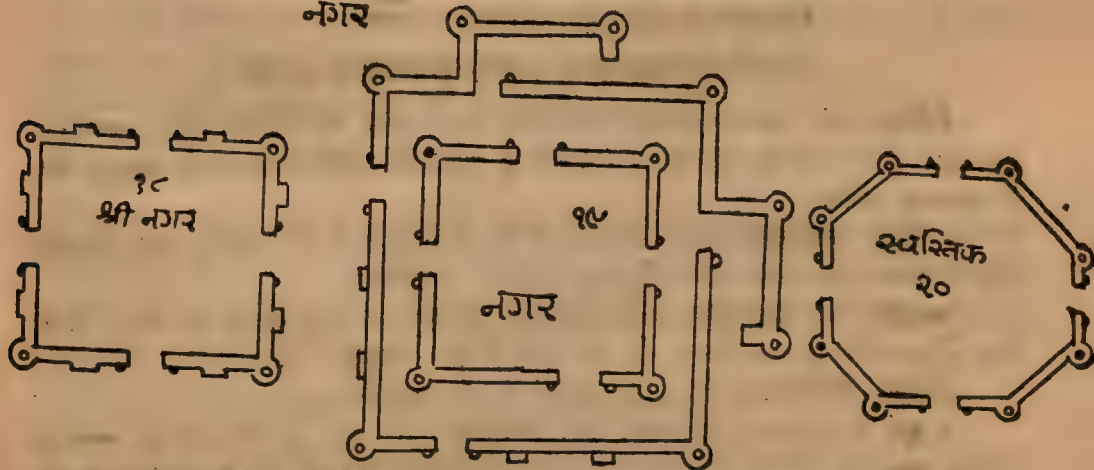 नगर
१८
श्री नगर
१९
नगर
स्वस्तिक
२०